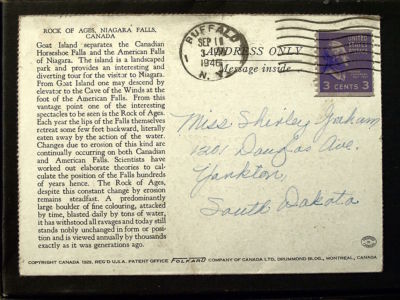 ROCK OF AGES, NIAGARA FALLS,
CANADA
Goat Island separates the Canadian
Horseshoe Falls and the American Falls
of Niagara. The island is a landscaped
park and provides an interesting and
diverting tour for the visitor to Niagara.
From Goat Island one may descend by
elevator to the Cave of the Winds at the
foot of the American Falls. From this
vantage point one of the interesting
spectacles to be seen is the Rock of Ages.
Each year the lips of the Falls themselves
retreat some few feet backward, literally
eaten away by the action of the water.
Changes due to erosion of this kind are
continually occurring on both Canadian
and American Falls. Scientists have
worked out elaborate theories to cal-
culate the position of the Falls hundreds
of years hence. The Rock of Ages,
despite this constant change by erosion
remains steadfast. A predominantly
large boulder of fine colouring, attacked
by time, blasted daily by tons of water,
it has withstood all ravages and today still
stands nobly unchanged in form or posi-
tion and is viewed annually by thousands
exactly as it was generations ago.
BUFFALO
SEP
1946
N.Y.
ADDRESS ONLY
Message inside
3 CENTS 3
Miss Shirley Graham
1201 Douglas Ave.
Yankton,
South Dakota
COPYRIGHT CANADA 1929, REG'D U.S.A. PATENT OFFICE FOLKARD COMPANY OF CANADA LTD., DRUMMOND BLDG., MONTREAL, CANADA